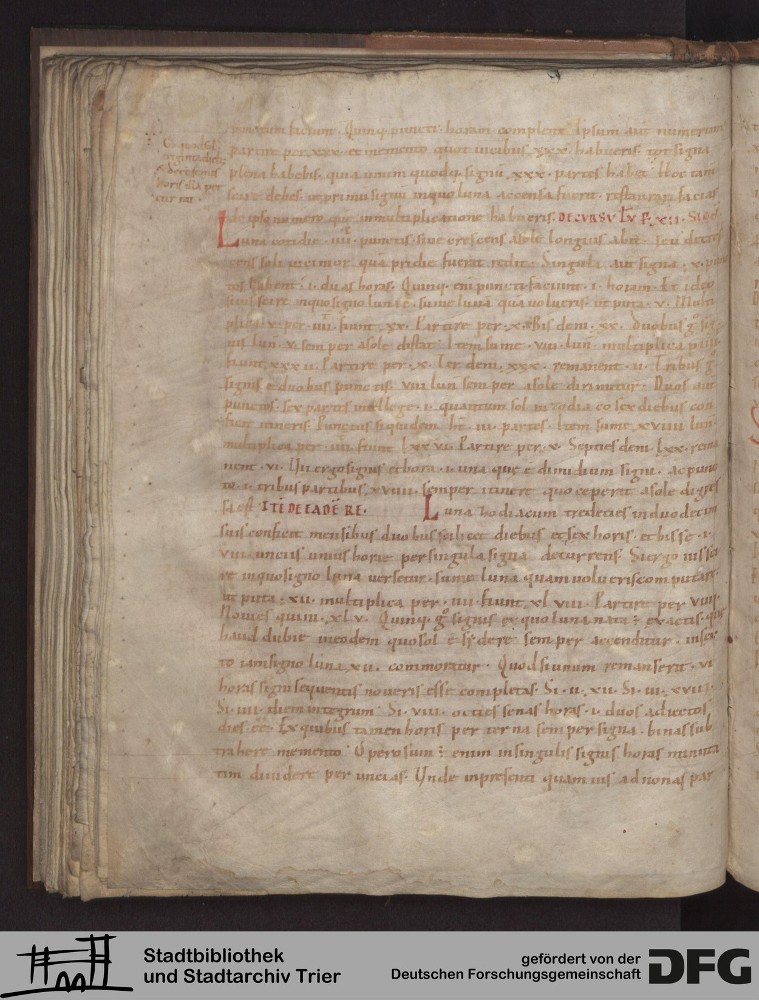 faciunt. Quinq; puncti. horam complent. Ipsum aut numerum
partire per .xxx. et memento. quot vicibus .xxx. habueris. tot signa
plena habebis. quia unum quodq; signū .xxx. partes habet. Hoc tam
scire debes. ut primū signū in quo luna accensa fuerit. restaurari facias
de ipso numero. quē in multiplicatione habueris. DE CURSU
Luna cotidie .iiii. punctis. sive crescens a sole longius abit. seu decres
cens soli vicinior. quā pridie fuerat redit. Singula aut signa .x. punc
tos habent .i. duas horas. Quinq; enī puncti faciunt .i. horam. Et ideo
si vis scire in quo signo luna ē. sume lunā quā volueris. ut puta .v. Multi
plica .v. per .iiii. fiunt .xx. Partire per .x. Bis deni .xx. duobus g̊ sig
nis lun .v. semper a sole distat. Item sume .viii. lun. multiplica per .iiii.
fiunt .xxxii. Partire per .x. Ter deni .xxx. remanent .ii. Tribus g̊
signis et duobus punctis. viii lun semper a sole dirimitur. Duos aut
punctos. sex partes intellege .i. quantum sol in zodiaco sex diebus con
ficit itineris. Punctus siquidem hē .iii. partes. Item sume .xviiii. lun.
multiplica per .iiii. fiunt .lxxvi. Partire per .x. Septies deni .lxx. rema
nent .vi. VII ergo signis et hora .i. una quę ē dimidium signi. ac punc
to .i. tribus partibus. xviiii. semper itinere quo ceperit a sole digres
sa est. ITĒ DE EADĒ RE. Luna zodiacum tredecies in duodecim
suis conficit mensibus duobus scilicet diebus et sex horis. et bisse .i.
viii. unciis unius horae per singula signa decurrens. Si ergo vis sci
re in quo signo luna versetur. sume luna quam volueris computare.
ut puta .xii. multiplica per .iiii. fiunt xlviii. Partire per viiii.
Novies quini .xlv. Quinq; g̊ signis ex quo luna nata ÷ exactis. quę
haud dubie in eodem quo sol ē sydere semper accenditur. in sex
to iam signo luna .xii. commoratur. Quod si unum remanserit .vi
horas signi sequentis noveris esse completas. Si .ii. xii. Si .iii. xviii.
Si .iiii. diem integrum. Si .viii. octies senas horas .i. duos adiectos
dies ēē. Ex quibus tamen horis per terna semper signa. binas sub
trahere memento. Operosum ÷ enim in singulis signis horas minuta
tim dividere per uncias. Unde in presenti quamvis ad nonas par
Stadtbibliothek
und Stadtarchiv Trier
gefördert von der
Deutschen Forschungsgemeinschaft
DFG